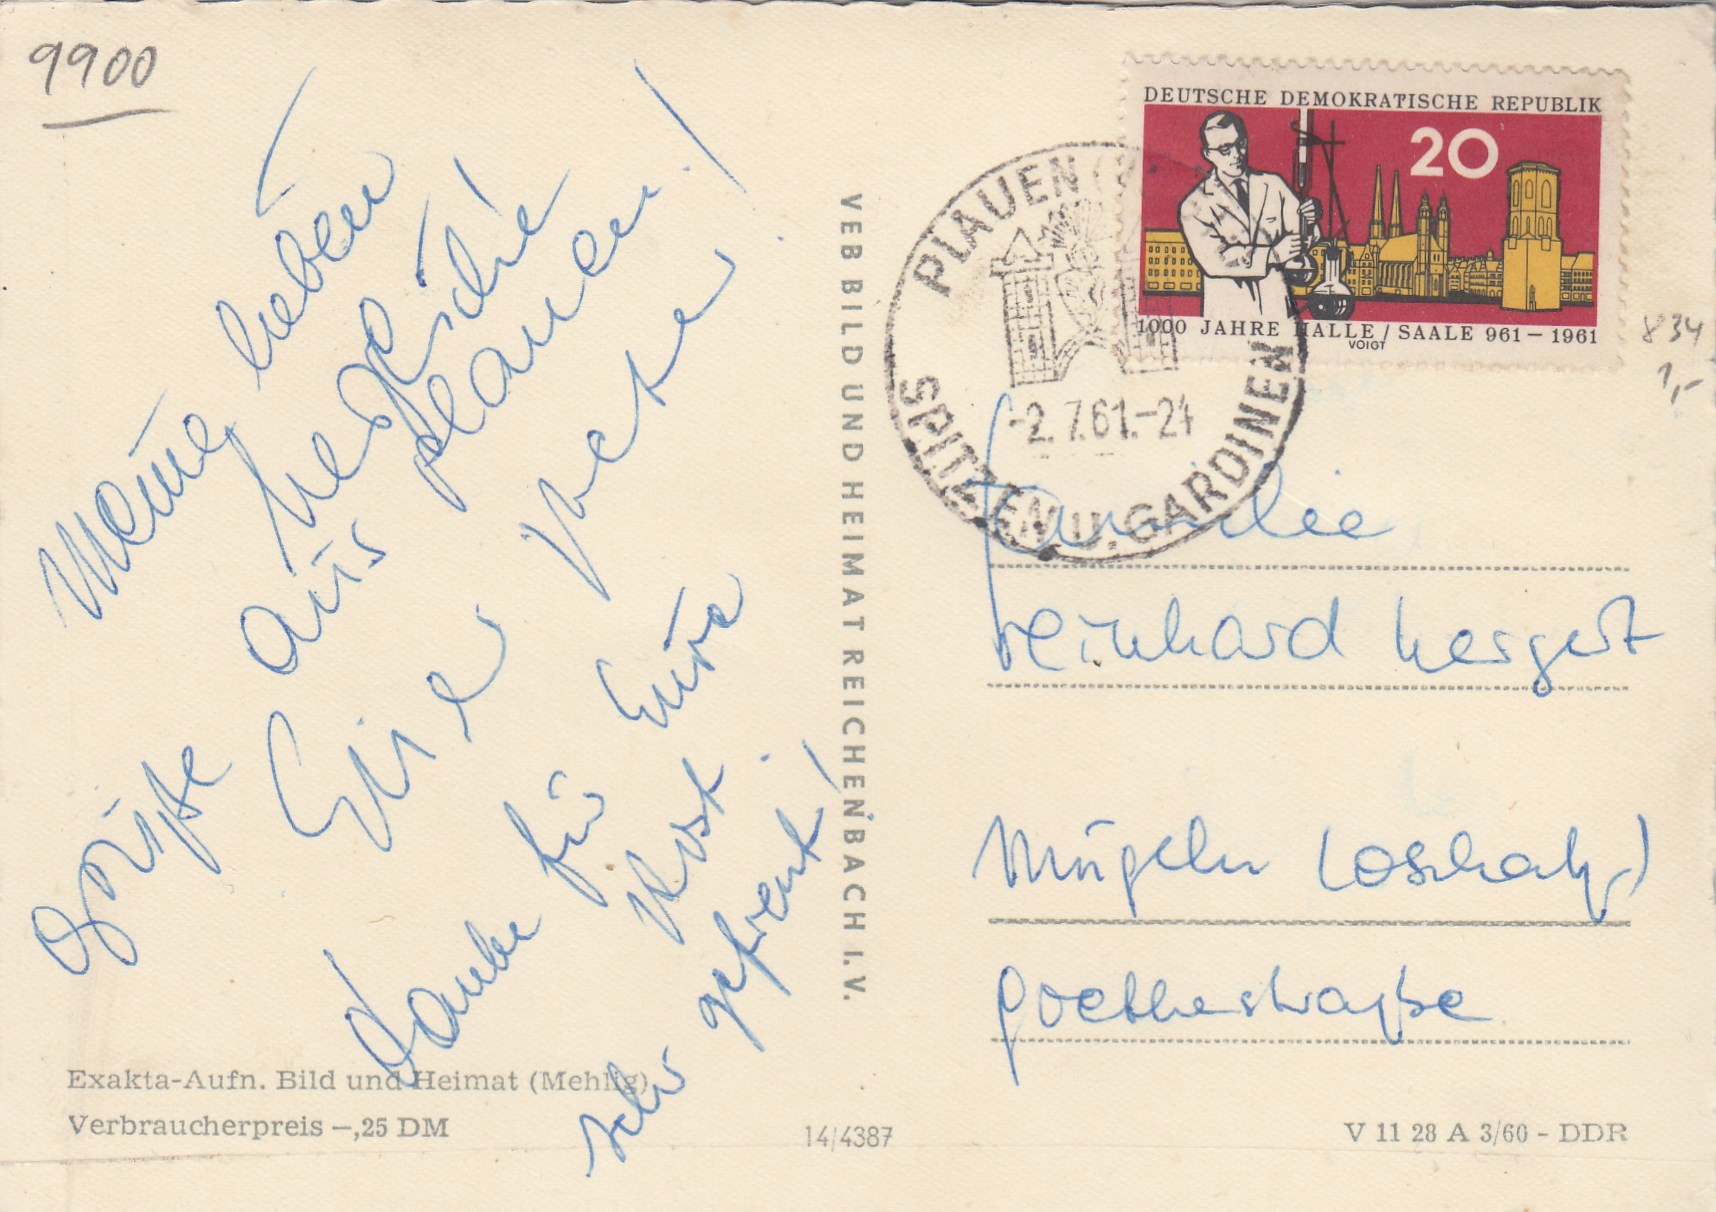 9900
Meine lieben
herzliche
Grüße aus Plauen!
Eure
Danke für Eure
Post.
sehr gefreut!
VEB BILD UND HEIMAT REICHENBACH I. V.
Exakta-Aufn. Bild und Heimat (Mehlig)
Verbraucherpreis —,25 DM
14/4387
V 11 28 A 3/60 - DDR
DEUTSCHE DEMOKRATISCHE REPUBLIK
20
1000 JAHRE HALLE / SAALE 961 — 1961
VOIGT
834
1,-
PLAUEN
-2. 7.61.-24
SPITZEN U. GARDINEN
Familie
Reinhard Hergert
Mügeln (Oschatz)
Goethestraße